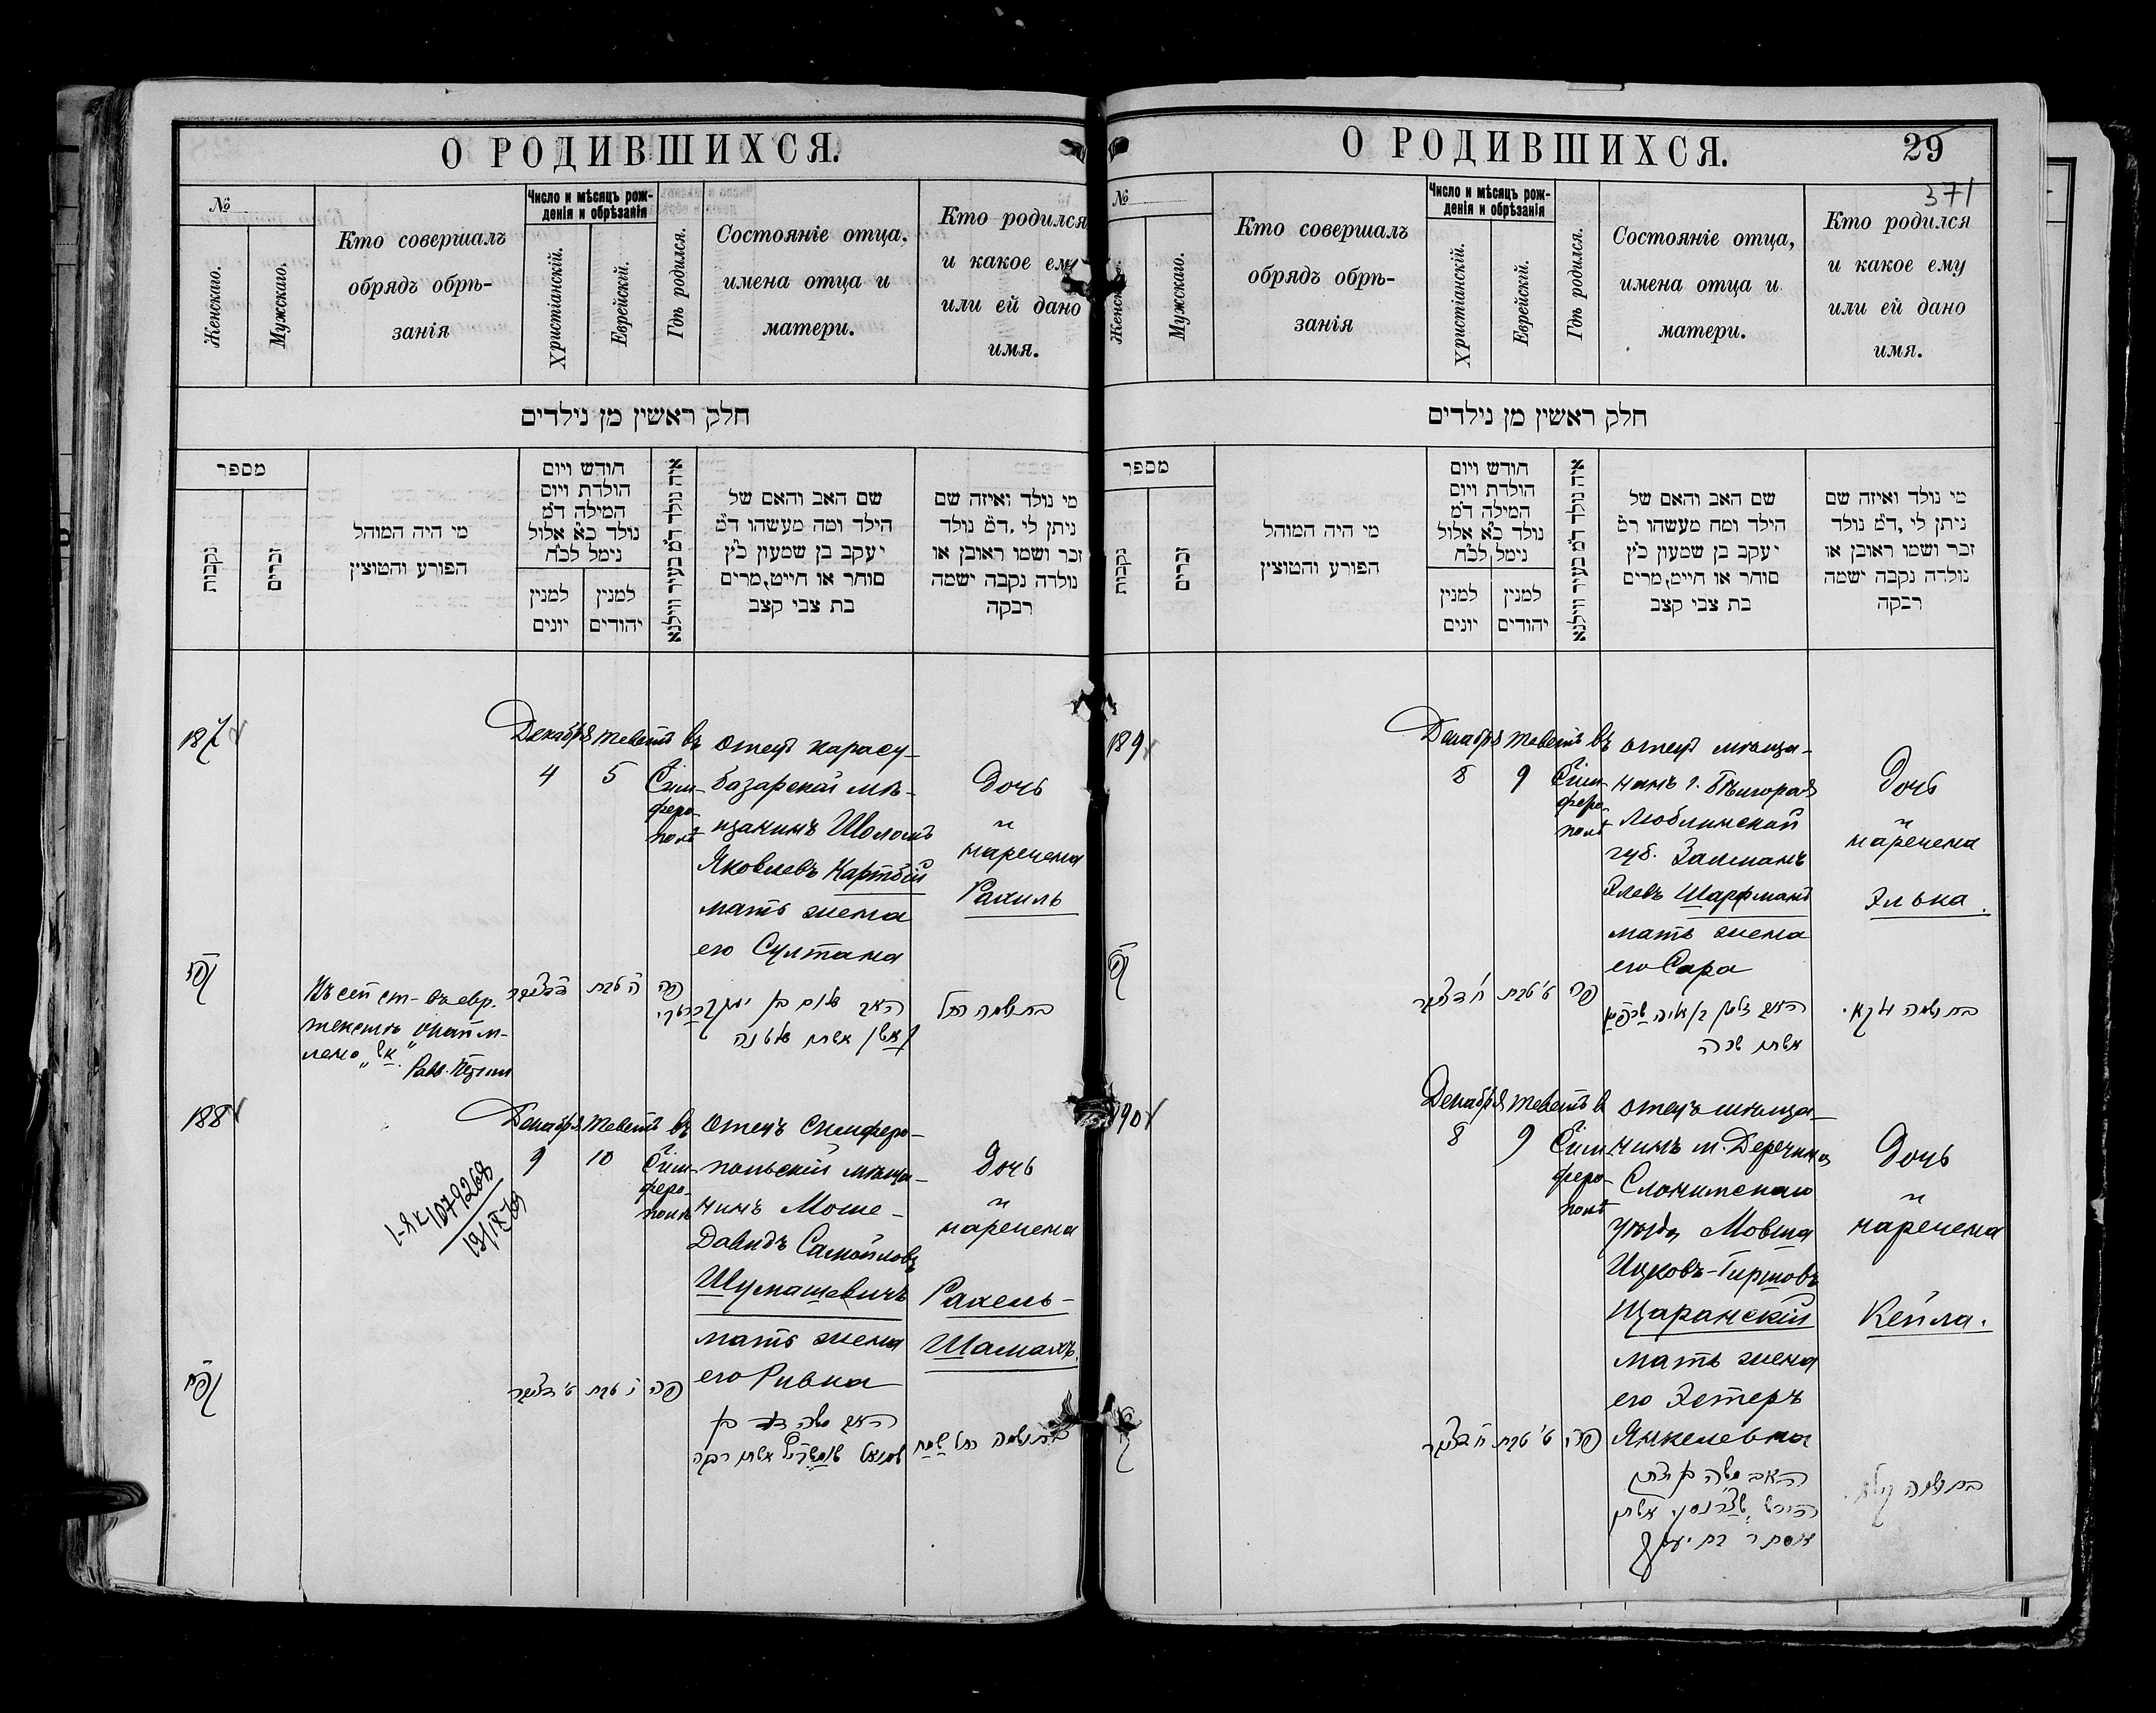 О РОДИВШИХСЯ.
№
Женскаго.
Мужскаго.
Кто совершалъ
обрядъ обрѣ-
занія
Число и мѣсяцъ рож-
денія и обрѣзанія
Христіанскій.
Еврейскій.
Гдѣ родился.
Состояніе отца,
имена отца и
матери.
Кто родился
и какое ему
или ей дано
имя.
חלק ראשין מן נילדים
מספר
נקבות
זכרים
מי היה המוהל
הפורע והמוצין
חודש ויום
הולדת ויום
המילה ד״מ
נולד כ״א אלול
נימל לכ״ח
למנין
יונים
למנין
יהודים
איה נולד ד״מ בעיר ווילנא
שם האב והאם של
הילד ומה מעשהו ד״מ
יעקב בן שמעון כ״ץ
סוחר או חייט, מרים
בת צבי קצב
מי נולד ואיזה שם
ניתן לי, ד״מ נולד
זכר ושמו ראובן או
נולדה נקבה ישמה
רבקה
187
Декабря Теветъ въ
4 5 Сим-
феро-
полѣ
отецъ карасу-
базарскій мѣ-
щанинъ Шоломъ
Яковлевъ
мать жена
его Султана
Дочь
и
наречена
Рахиль
ה טבת
פה
האב שלום בן יעקב
בת ושמה רחל
188
Декабря Теветъ въ
9 10 Сим-
феро-
полѣ
отецъ симферо-
польскій мѣща-
нинъ Моше-
Давидъ Самойловъ
Шумашевичъ
мать жена
его Ривка
Дочь
и
наречена
Рахель-
Шамахъ.
1-ЯК 1079268
י טבת
פה
האב משה דוד בן
שמואל
אשתו רבקה
О РОДИВШИХСЯ.
29
371
№
Женск
Мужскаго.
Кто совершалъ
обрядъ обрѣ-
занія
Число и мѣсяцъ рож-
денія и обрѣзанія
Христіанскій.
Еврейскій.
Гдѣ родился.
Состояніе отца,
имена отца и
матери.
Кто родился
и какое ему
или ей дано
имя.
חלק ראשין מן נילדים
מספר
נקבות
זכרים
מי היה המוהל
הפורע והמוצין
חודש ויום
הולדת ויום
המילה ד״מ
נולד כ״א אלול
נימל לכ״ח
למנין
יונים
למנין
יהודים
איה נולד ד״מ בעיר ווילנא
שם האב והאם של
הילד ומה מעשהו ד״מ
יעקב בן שמעון כ״ץ
סוחר או חייט, מרים
בת צבי קצב
מי נולד ואיזה שם
ניתן לי, ד״מ נולד
זכר ושמו ראובן או
נולדה נקבה ישמה
רבקה
189
Декабря Теветъ въ
8 9 Сим-
феро-
полѣ
отецъ мѣща-
нинъ г.
Люблинской
губ. Залманъ
Элевъ Шарфманъ
мать жена
его Сара
Дочь
и
наречена
Элька.
ט׳ טבת
פה
אשתו שרה
190
Декабря Теветъ въ
8 9 Сим-
феро-
полѣ
отецъ мѣща-
нинъ м. Деречина
Слонимскаго
уѣзда Мовша
Ицковъ-Гиршовъ
Щаранскій
мать жена
его Эстеръ
Янкелевна
Дочь
и
наречена
Кейла.
ט׳ טבת
פה
האב משה בן יצחק
אסתר בת יעקב